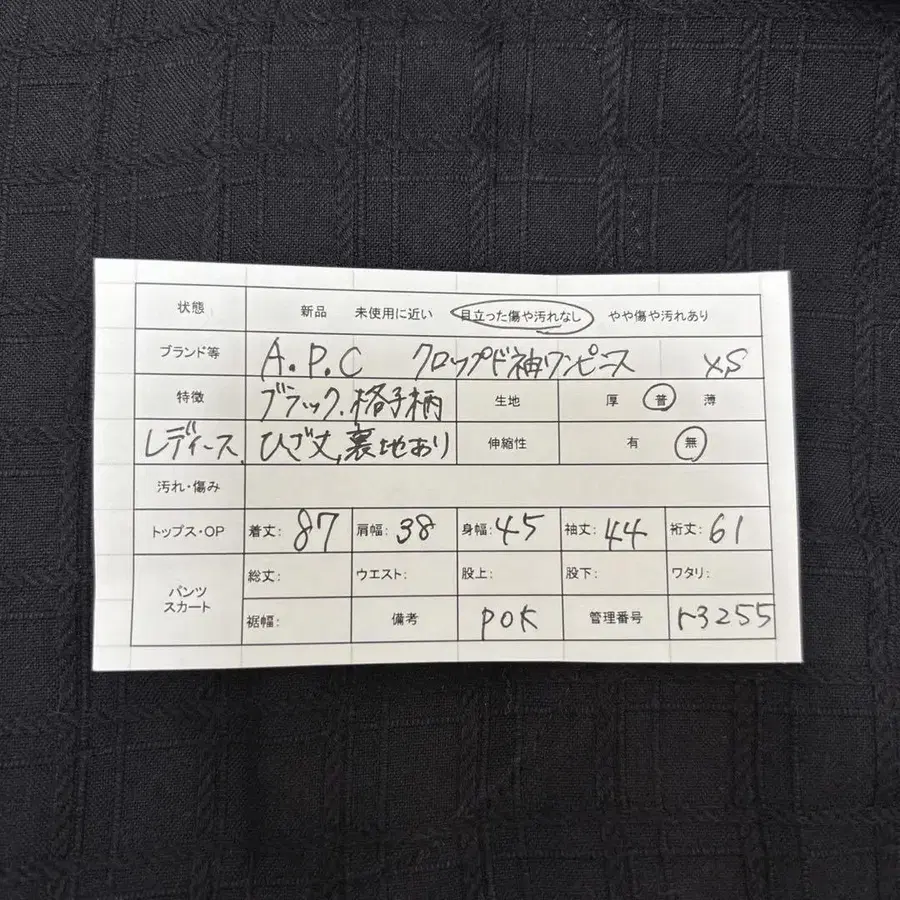 状態 新品 未使用に近い 目立った傷や汚れなし やや傷や汚れあり
ブランド等 A.P.C クロップド袖ワンピース XS
特徴 ブラック、格子柄 生地 厚 普 薄
レディース、ひざ丈、裏地あり 伸縮性 有 無
汚れ・傷み
トップス・OP 着丈: 87 肩幅: 38 身幅: 45 袖丈: 44 裄丈: 61
パンツ スカート 総丈: ウエスト: 股上: 股下: ワタリ:
裾幅: 備考 POK 管理番号 r3255